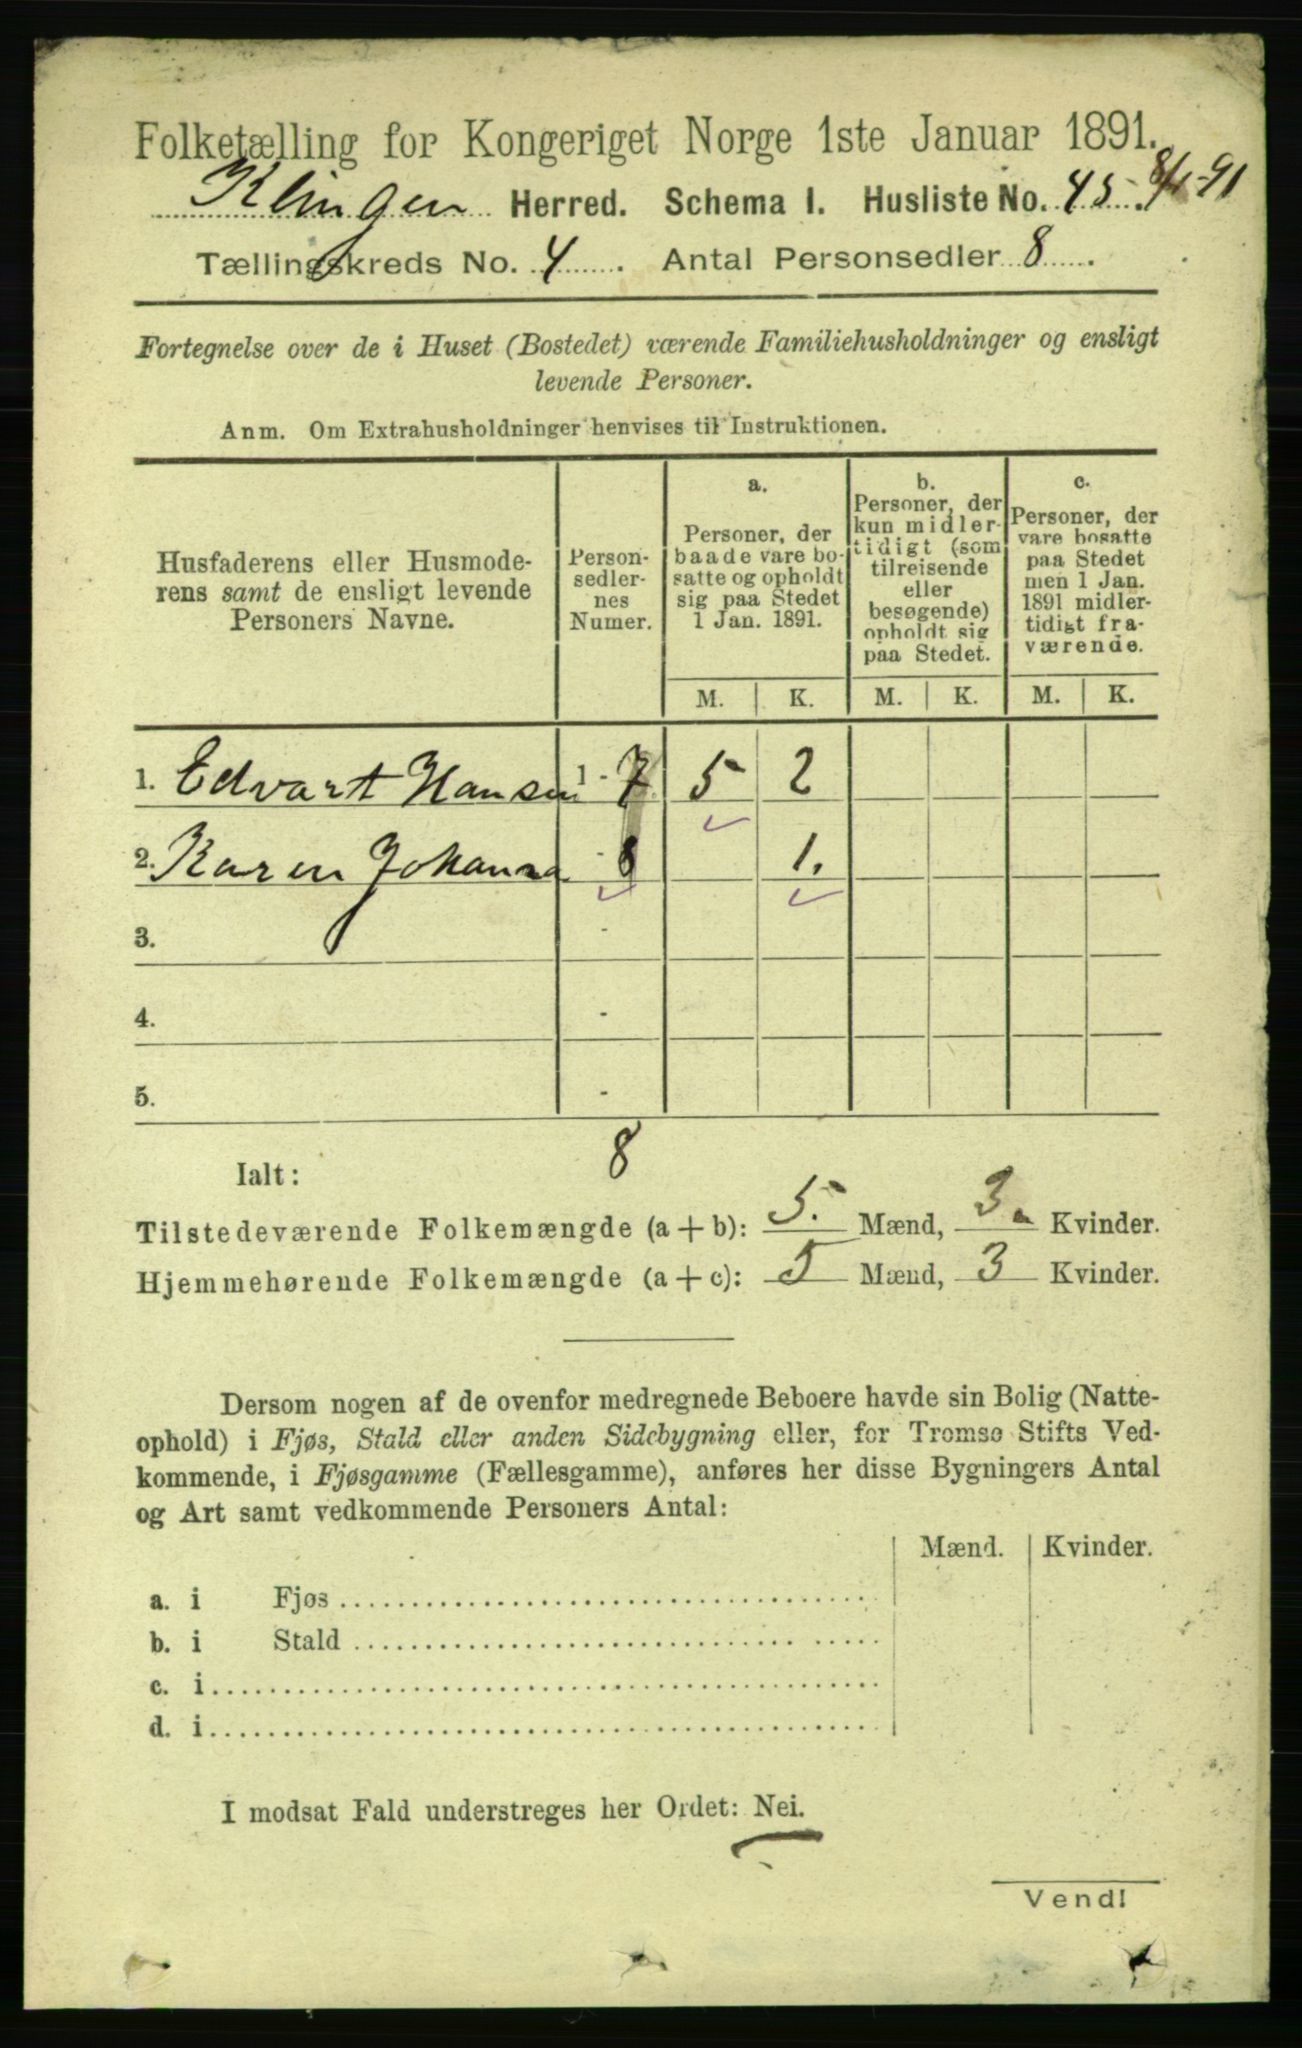 Folketælling for Kongeriget Norge 1ste Januar 1891.
Klingen Herred. Schema I. Husliste No. 45. 8/1-91
Tællingskreds No. 4. Antal Personsedler 8.
Fortegnelse over de i Huset (Bostedet) værende Familiehusholdninger og ensligt
levende Personer.
Anm. Om Extrahusholdninger henvises til Instruktionen.
Husfaderens eller Husmode-
rens samt de ensligt levende
Personers Navne.
Person-
sedler-
nes
Numer.
a.
Personer, der
baade vare bo-
satte og opholdt
sig paa Stedet
1 Jan. 1891.
b.
Personer, der
kun midler-
tidigt (som
tilreisende
eller
besøgende)
opholdt sig
paa Stedet.
c.
Personer, der
vare bosatte
paa Stedet
men 1 Jan.
1891 midler-
tidigt fra-
værende.
M. K. M. K. M. K.
1. Edvart Hansen 1 - 7 5 2
2. Karen Johanna - 8 1.
3. -
4. -
5. -
Ialt: 8
Tilstedeværende Folkemængde (a + b): 5. Mænd, 3. Kvinder.
Hjemmehørende Folkemængde (a + c): 5 Mænd, 3 Kvinder.
Dersom nogen af de ovenfor medregnede Beboere havde sin Bolig (Natte-
ophold) i Fjøs, Stald eller anden Sidebygning eller, for Tromsø Stifts Ved-
kommende, i Fjøsgamme (Fællesgamme), anføres her disse Bygningers Antal
og Art samt vedkommende Personers Antal:
Mænd. Kvinder.
a. i Fjøs
b. i Stald
c. i
d. i
I modsat Fald understreges her Ordet: Nei.
Vend!